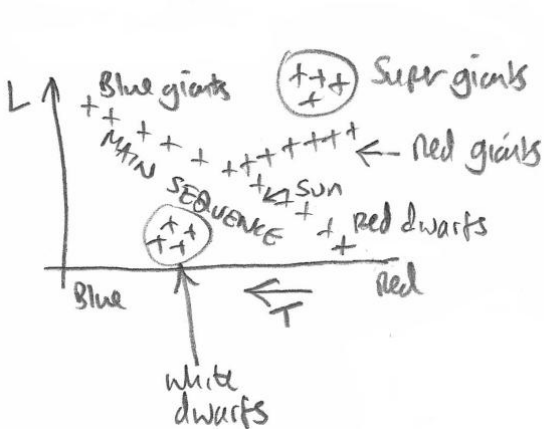 L
Blue giants
Super giants
Red giants
MAIN SEQUENCE
Sun
Red dwarfs
Blue
T
Red
white
dwarfs